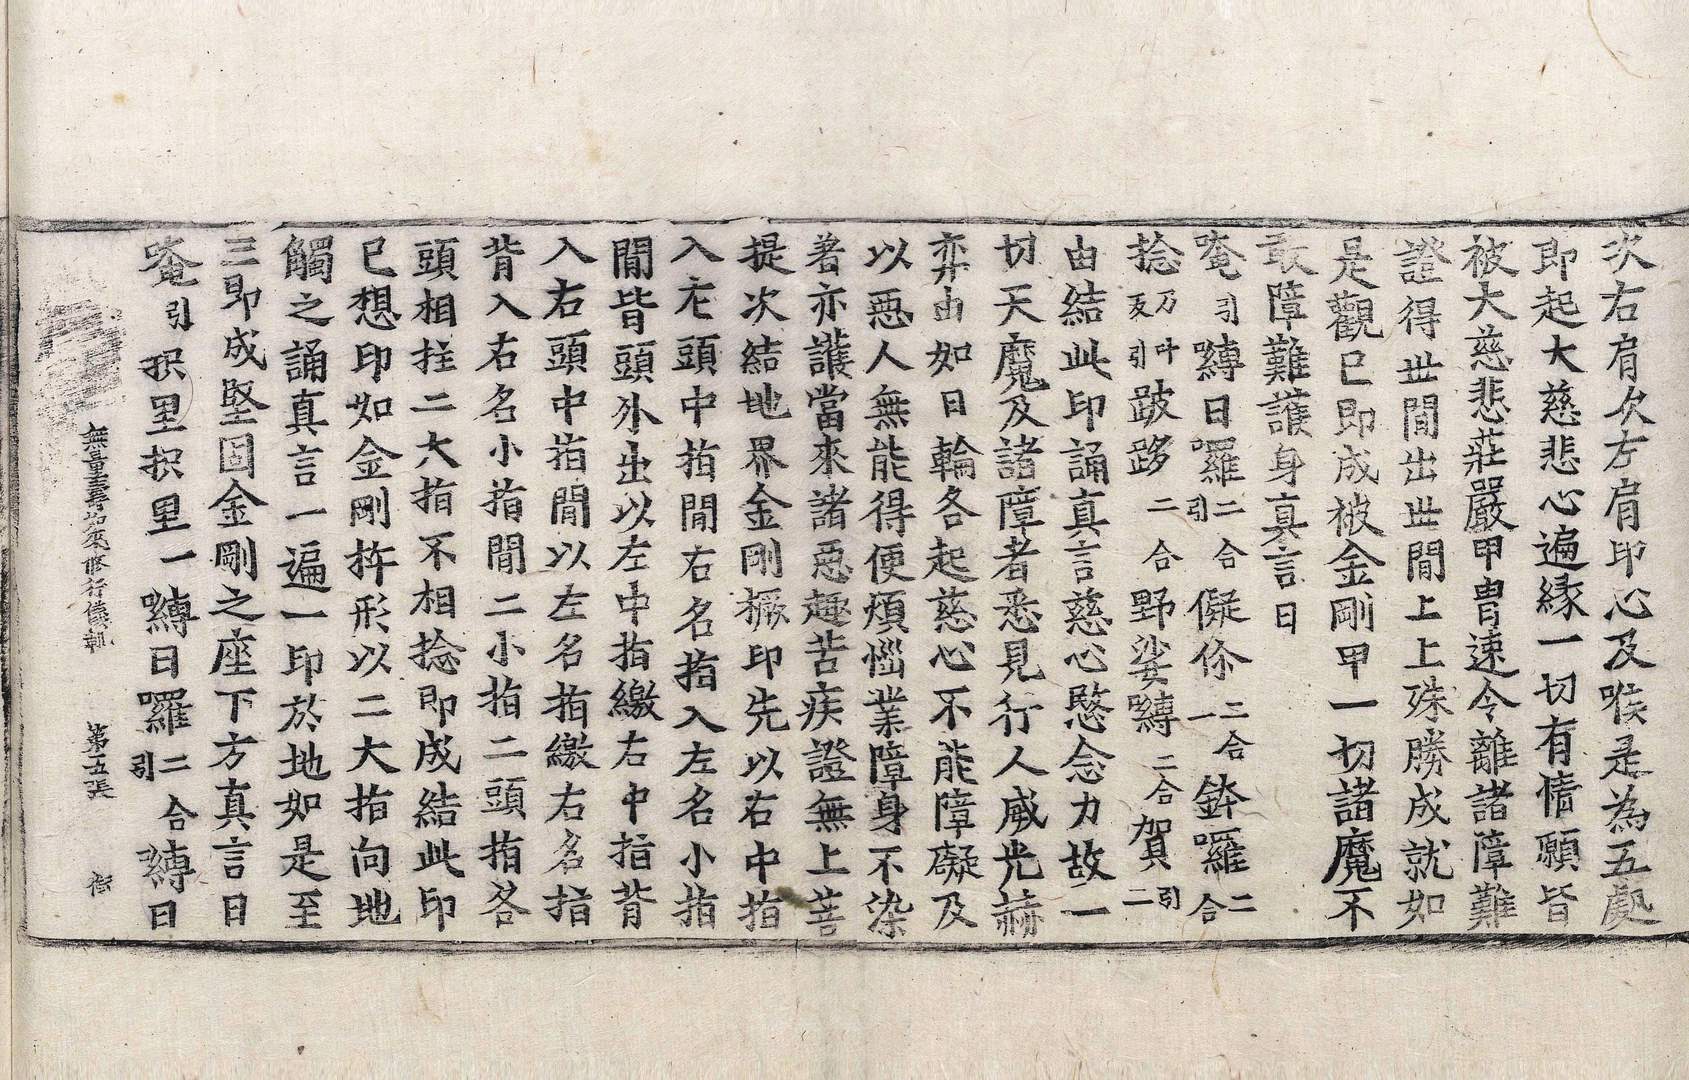 次右肩次左肩印心及喉是為五處
即起大慈悲心遍緣一切有情願皆
被大慈悲莊嚴甲冑速令離諸障難
證得世間出世間上上殊勝成就如
是觀已即成被金剛甲一切諸魔不
敢障難護身真言曰
唵引嚩日囉二合引儗伱二合一鉢囉二合
捻乃叶反引跛跢二合野娑嚩二合賀引二
由結此印誦真言慈心愍念力故一
切天魔及諸障者悉見行人威光赫
弈由如日輪各起慈心不能障礙及
以惡人無能得便煩惱業障身不染
著亦護當來諸惡趣苦疾證無上菩
提次結地界金剛橛印先以右中指
入左頭中指間右名指入左名小指
間皆頭外出以左中指繳右中指背
入右頭中指間以左名指繳右名指
背入右名小指間二小指二頭指各
頭相拄二大指不相捻即成結此印
已想印如金剛杵形以二大指向地
觸之誦真言一遍一印於地如是至
三即成堅固金剛之座下方真言曰
唵引枳里枳里一嚩日囉二合引嚩日
無量壽如來修行儀軌 第五張